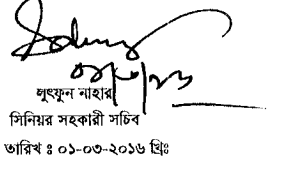 লুৎফুন নাহার
সিনিয়র সহকারী সচিব
তারিখ ঃ ০১-০৩-২০১৬ খ্রিঃ